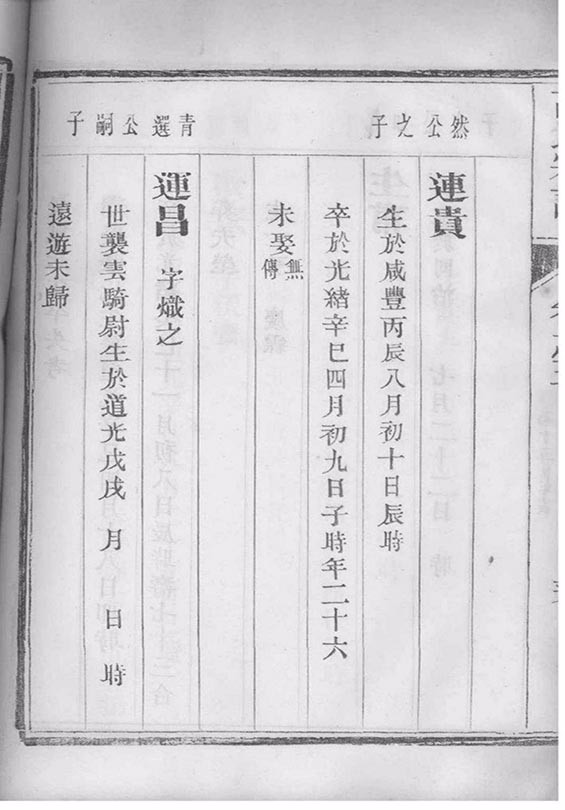 然公之子
連貴
生於咸豐丙辰八月初十日辰時
卒於光緒辛巳四月初九日子時年二十六
未娶無傳
青選公嗣子
運昌 字熾之
世襲雲騎尉生於道光戊戌 月 日 時
遠遊未歸